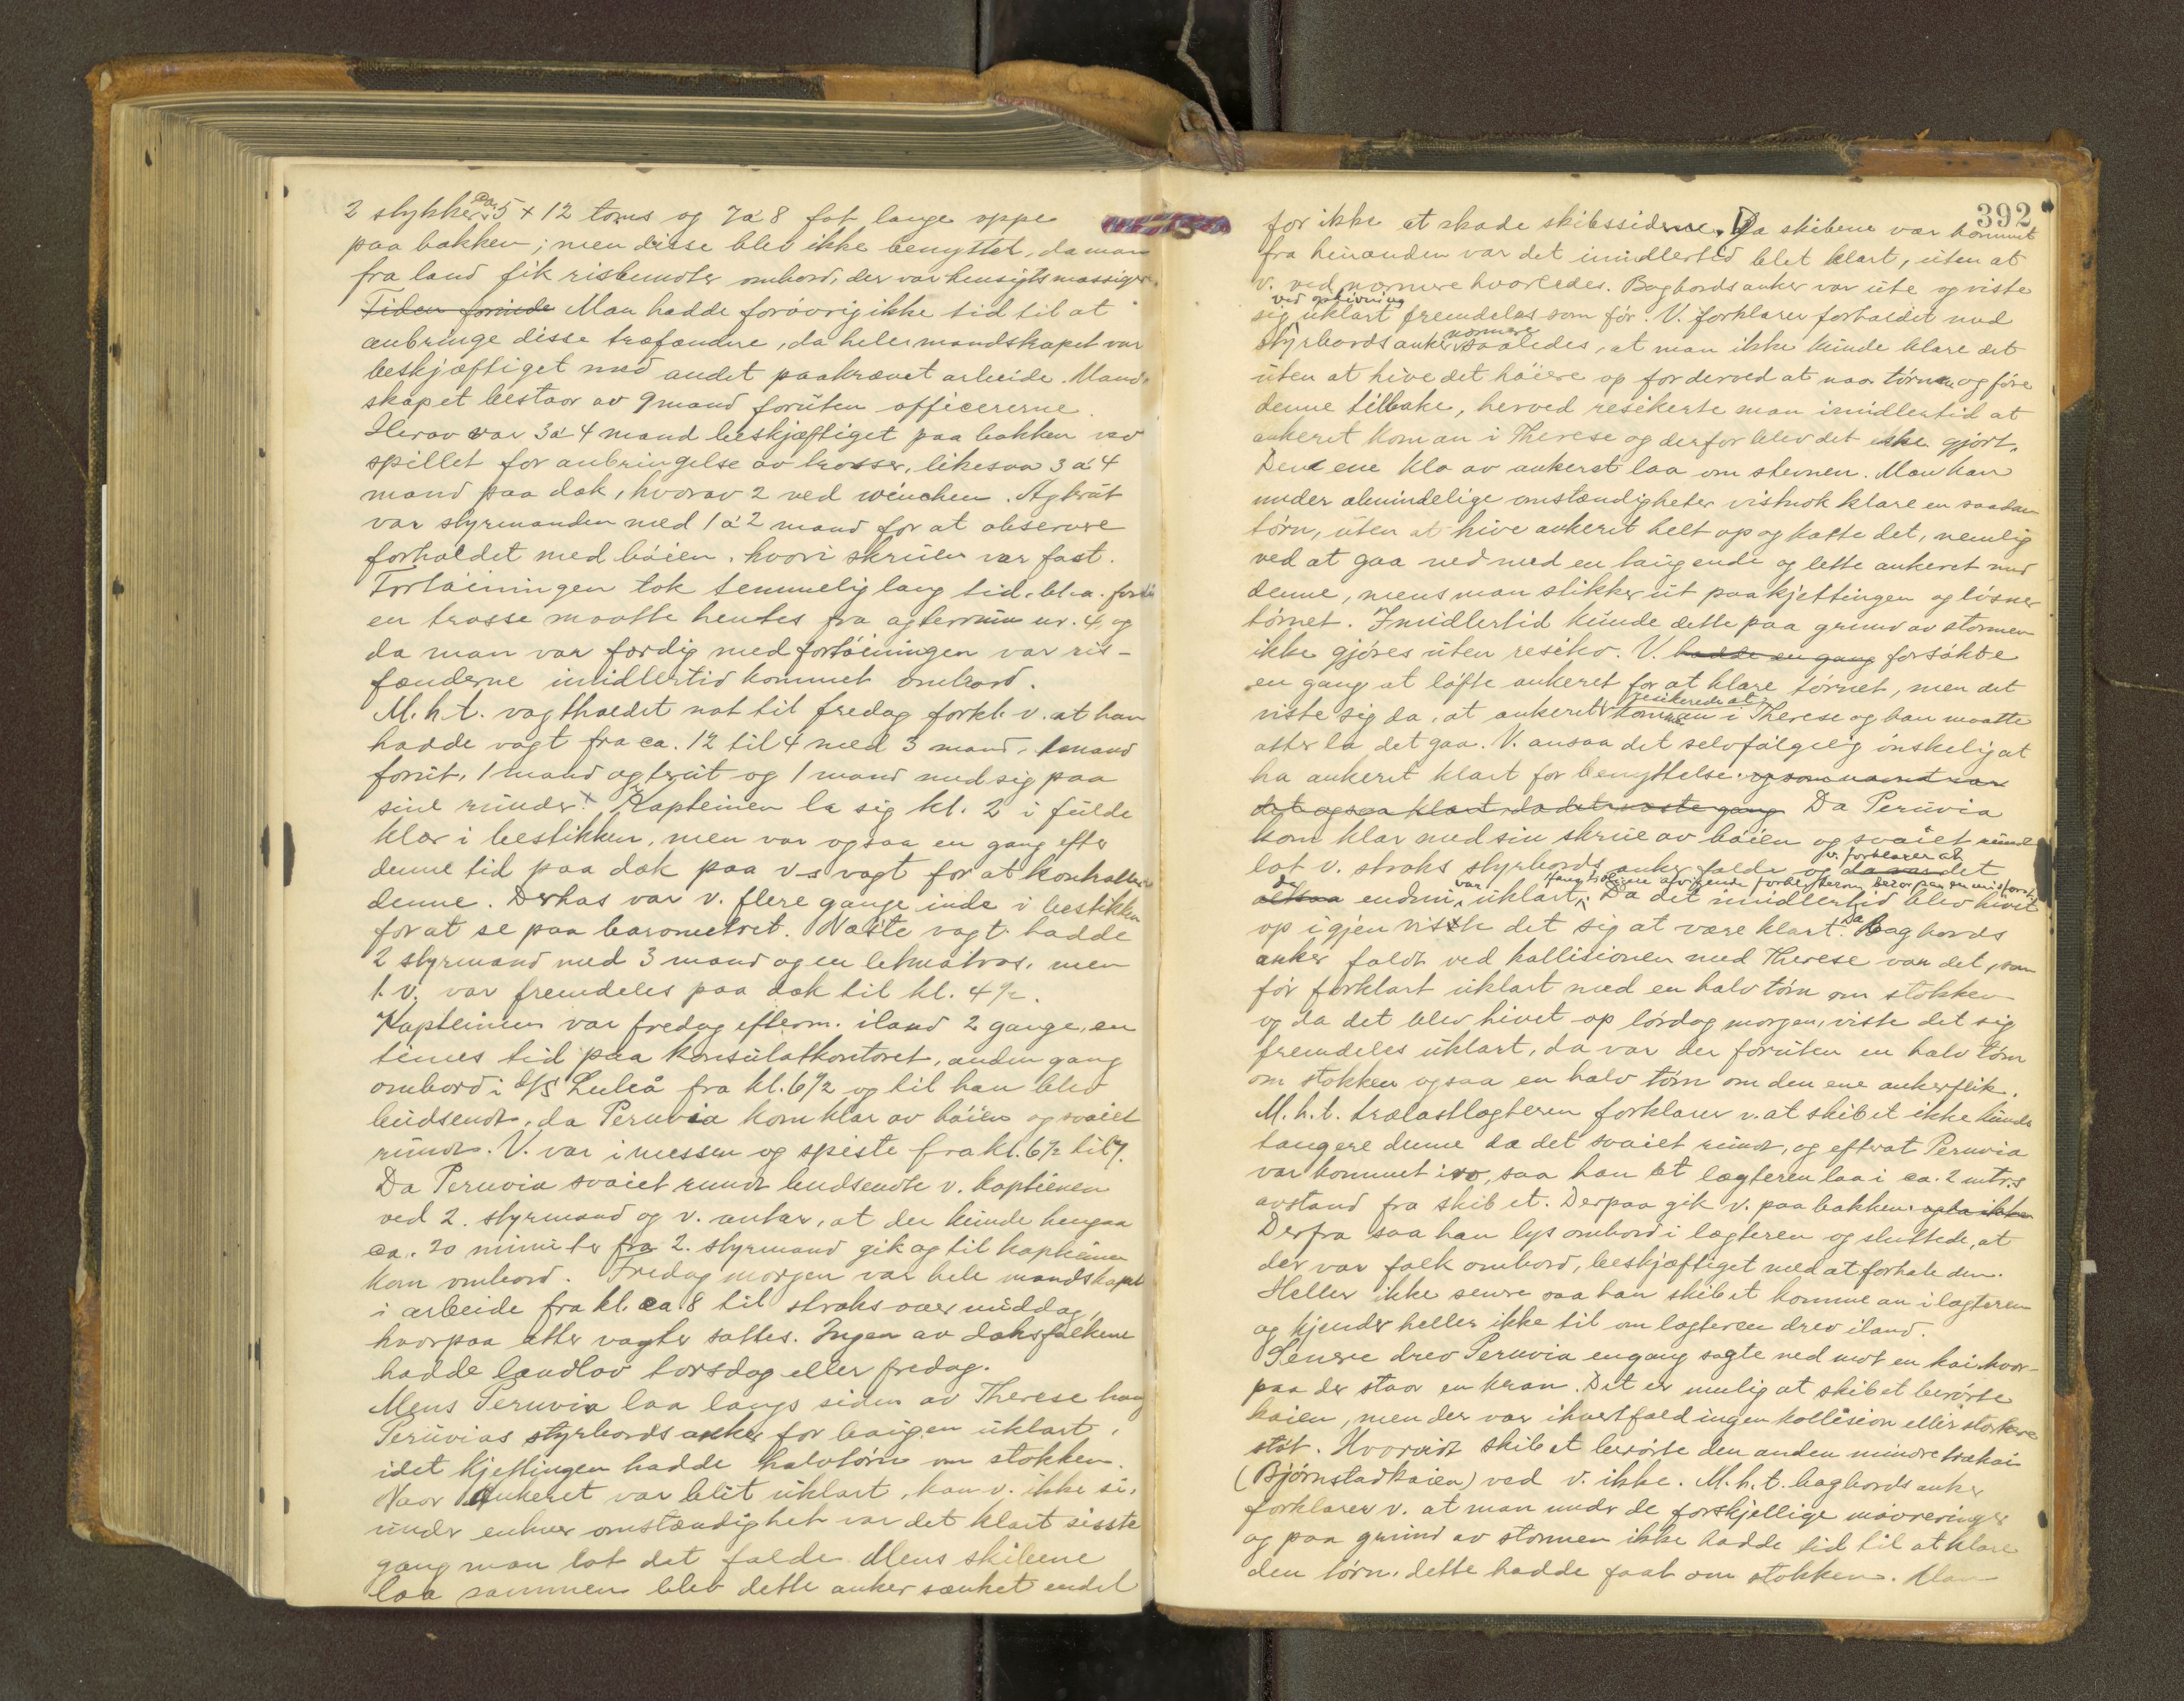 2 stykker paa 5 x 12 toms og 7 á 8 fot lange oppe
paa bakken; men disse blev ikke benyttet, da man
fra land fik risbundter ombord, der var hensigtsmæssigere.
Tiden Man hadde forøvrig ikke tid til at
anbringe disse træfændere, da hele mandskapet var
beskjæftiget med andet paakrævet arbeide. Mand-
skapet bestaar av 9 mand foruten officererne.
Herav var 3 á 4 mand beskjæftiget paa bakken ved
spillet for anbringelse av trosser, likesaa 3 á 4
mand paa dæk, hvorav 2 ved winchen. Agterut
var styrmanden med 1 á 2 mand for at observere
forholdet med bøien, hvori skruen var fast.
Fortøiningen tok temmelig lang tid, bl.a. fordi
en trosse maatte hentes fra agterrum nr. 4, og
da man var færdig med fortøiningen var ris-
fænderne imidlertid kommet ombord.
M.h.t. vagtholdet nat til fredag forkl. v. at han
hadde vagt fra ca. 12 til 4 med 3 mand, 1 mand
forut, 1 mand agterut og 1 mand med sig paa
sine runder. Kapteinen la sig kl. 2 i fulde
klær i bestikken, men var ogsaa en gang efter
denne tid paa dæk paa v-s vagt for at kontrollere
denne. Desuten var v. flere gange inde i bestikken
for at se paa barometret. Næste vagt hadde
2 styrmand med 3 mand og en letmatros, men
1. v. var fremdeles paa dæk til kl. 4½.
Kapteinen var fredag efterm. iland 2 gange, en
times tid paa konsulatkontoret, anden gang
ombord i d/s Luleå fra kl. 6½ og til han blev
budsendt, da Peruvia kom klar av bøien og svaiet
rundt. V. var i messen og spiste fra kl. 6½ til 7.
Da Peruvia svaiet rundt budsendte v. kapteinen
ved 2. styrmand og v. antar, at der kunde hengaa
ca. 20 minuter fra 2. styrmand gik og til kapteinen
kom ombord. Fredag morgen var hele mandskapet
i arbeide fra kl. ca. 8 til straks over middag,
hvorpaa atter vagter sattes. Ingen av dæksfolkene
hadde landlov torsdag eller fredag.
Mens Peruvia laa langs siden av Therese hang
Peruvias styrbords anker for baugen uklart,
idet kjettingen hadde halvtørn om stokken.
Naar ankeret var blit uklart, kan v. ikke si,
under enhver omstændighet var det klart sisste
gang man lot det falde. Mens skibene
laa sammen blev dette anker sænket endel
392
for ikke at skade skibssiderne. Da skibene var kommet
fra hinanden var det imidlertid blet klart, uten at
v. ved nærmere hvorledes. Bagbords anker var ute og viste
ved ophivning
sig uklart fremdeles som før. V. forklarer forholdet med
nærmere
styrbords anker saaledes, at man ikke kunde klare det
uten at hive det høiere op for derved at naa tørnen og føre
denne tilbake, herved resikerte man imidlertid at
ankeret kom an i Therese og derfor blev det ikke gjort.
Den ene klo av ankeret laa om stevnen. Man kan
under almindelige omstændigheter vistnok klare en saadan
tørn, uten at hive ankeret helt op og katte det, nemlig
ved at gaa ned med en taugende og lette ankeret med
denne, mens man stikker ut paa kjettingen og løsner
tørnet. Imidlertid kunde dette paa grund av stormen
ikke gjøres uten resiko. V. hadde en gang forsøkte
en gang at løfte ankeret for at klare tørnet, men det
resikerede at
viste sig da, at ankeret komme an i Therese og han maatte
atter la det gaa. V. ansaa det selvfølgelig ønskelig at
ha ankeret klart for benyttelse. og som nævnt var
det ogsaa klart da det sisste gang Da Peruvia
kom klar med sin skrue av bøien og svaiet rundt
v. forklarer at
lot v. straks styrbords anker falde og da var det
altsaa endnu var uklart. Da det imidlertid blev hivet
op igjen viste det sig at være klart. Da Bagbords
anker faldt ved kollisionen med Therese var det, som
før forklart uklart med en halv tørn om stokken
og da det blev hivet op lørdag morgen, viste det sig
fremdeles uklart, da var der foruten en halv tørn
om stokken ogsaa en halv tørn om den ene ankerflik.
M.h.t. trælastlægteren forklarer v. at skibet ikke kunde
tangere denne da det svaiet rundt, og efterat Peruvia
var kommet i ro, saa han at lægteren laa i ca. 2 mtrs
avstand fra skibet. Derpaa gik v. paa bakken. og la ikke
Derfra saa han lys ombord i lægteren og sluttede, at
der var folk ombord, beskjæftiget med at forhale den.
Heller ikke senere saa han skibet komme an i lægteren
og kjender heller ikke til om lægteren drev iland.
Senere drev Peruvia engang sagte ned mot en kai hvor-
paa der staar en kran. Det er mulig at skibet berørte
kaien, men der var ihvertfald ingen kollision eller sterkere
støt. Hvorvidt skibet berørte den anden mindre trækai
(Bjørnstadkaien) ved v. ikke. M.h.t. bagbords anker
forklarer v. at man under de forskjellige manøvreringer
og paa grund av stormen ikke hadde tid til at klare
den tørn, dette hadde faat om stokken. Man